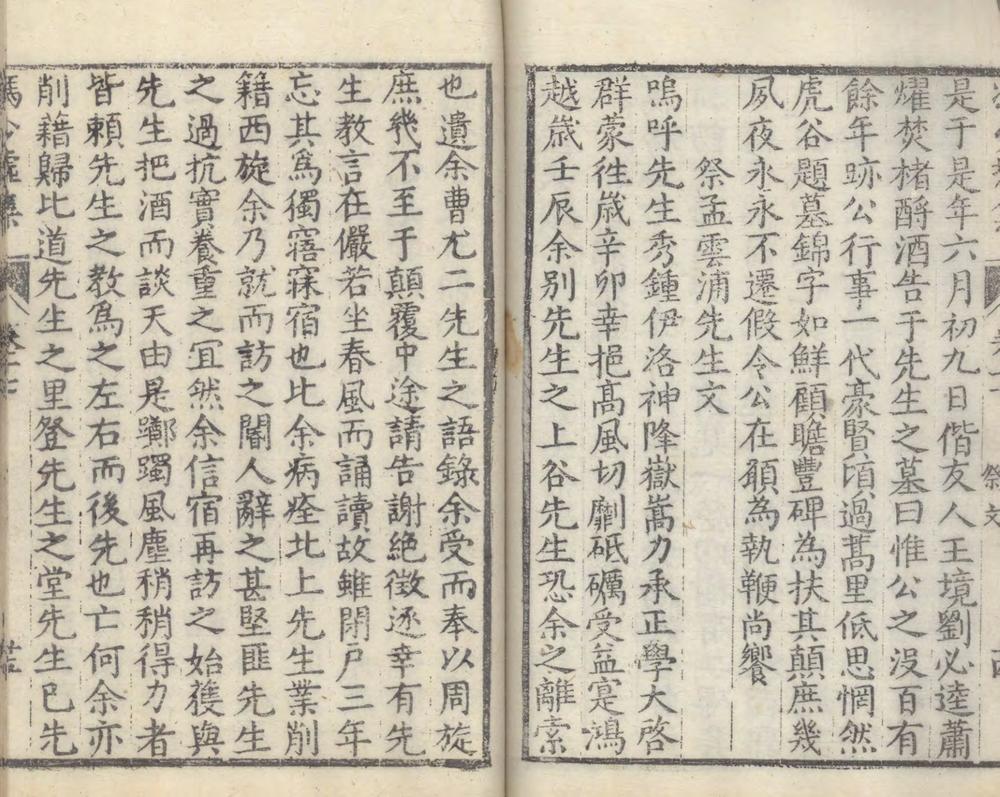 祭文
是于是年六月初九日偕友人王境劉必逵蕭
燿焚楮酹酒告于先生之墓曰惟公之没百有
餘年跡公行事一代豪賢頃過蒿里低思惘然
虎谷題墓錦字如鮮顧瞻豐碑為扶其顛庶幾
夙夜永永不遷假令公在願為執鞭尚饗
祭孟雲浦先生文
嗚呼先生秀鍾伊洛神降嶽嵩力承正學大啓
群蒙徃歲辛卯幸挹高風切劘砥礪受益寔鴻
越歲壬辰余别先生之上谷先生恐余之離索
也遺余曹尤二先生之語錄余受而奉以周旋
庶幾不至于顛覆中途請告謝絶徵逐幸有先
生教言在儼若坐春風而誦讀故雖閉户三年
忘其為獨寤寐宿也比余病痊北上先生業削
籍西旋余乃就而訪之閽人辭之甚堅匪先生
之過抗實養重之冝然余信宿再訪之始獲與
先生把酒而談天由是躑躅風塵稍稍得力者
皆賴先生之教為之左右而後先也亡何余亦
削籍歸比道先生之里登先生之堂先生已先
馮少墟集 卷十七